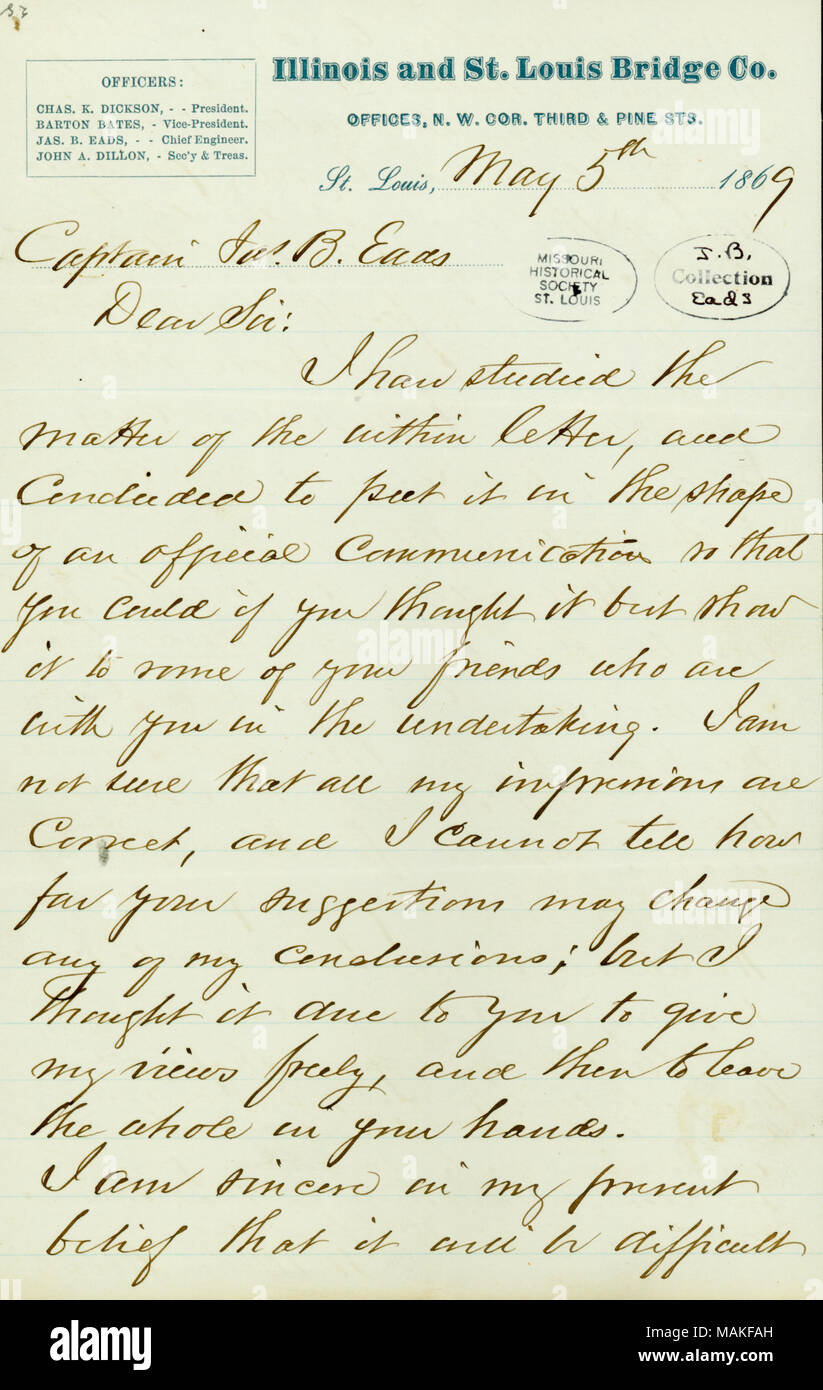 OFFICERS:
CHAS. K. DICKSON, - - President.
BARTON BATES, - Vice-President.
JAS. B. EADS, - - Chief Engineer.
JOHN A. DILLON, - Sec'y & Treas.
Illinois and St. Louis Bridge Co.
OFFICES, N. W. COR. THIRD & PINE STS.
St. Louis, May 5th 1869
Captain Jas. B. Eads
MISSOURI
HISTORICAL
SOCIETY
ST. LOUIS
J. B.
Collection
Eads
Dear Sir:
I have studied the
matter of the within letter, and
Concluded to put it in the shape
of an official Communication so that
you could if you thought it but show
it to some of your friends who are
with you in the undertaking. I am
not sure that all my impressions are
Correct, and I cannot tell how
far your suggestions may change
any of my conclusions; but I
thought it due to you to give
my views freely, and then to leave
the whole in your hands.
I am sincere in my present
belief that it will be difficult
alamy
Image ID: MAKFAH
www.alamy.com